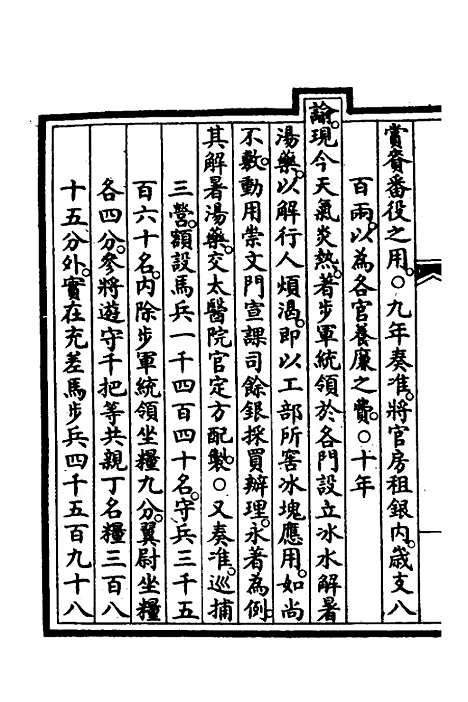 賞賚番役之用。○九年奏准。將官房租銀內。歲支八
百兩。以為各官養廉之費。○十年
諭。現今天氣炎熱。著步軍統領於各門設立冰水解暑
湯藥。以解行人煩渴。即以工部所窖冰塊應用。如尚
不敷。動用崇文門宣課司餘銀採買辦理。永著為例。
其解暑湯藥。交太醫院官定方配製。○又奏准。巡捕
三營。額設馬兵一千四百四十名。守兵三千五
百六十名。內除步軍統領坐糧九分。翼尉坐糧
各四分。參將遊守千把等共親丁名糧三百八
十五分外。實在充差馬步兵四千五百九十八